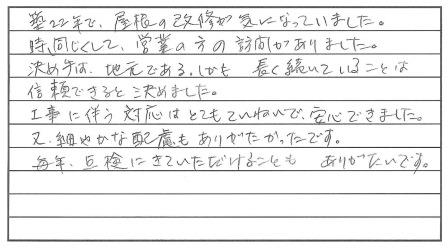 築22年で、屋根の改修が気になっていました。
時同じくして、営業の方の訪問がありました。
決め手は、地元である。しかも 長く続いていることは
信頼できると決めました。
工事に伴う対応はとてもていねいで、安心できました。
又、細やかな配慮もありがたかったです。
毎年、点検にきていただけることも ありがたいです。